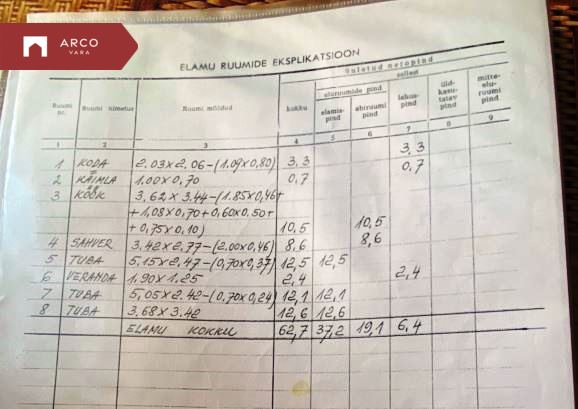 ARCO
VARA
ELAMU RUUMIDE EKSPLIKATSIOON
Ruumi nr. Ruumi nimetus Ruumi mõõdud kokku Suletud netopind
sellest
eluruumide pind lahus-pind üld-kasu-tatav pind mitte-elu-ruumi pind
elamis-pind abiruumi pind
1 2 3 4 5 6 7 8 9
1 KODA 2.03×2.06-(1.09×0.80) 3,3 3,3
2 KÄIMLA 1.00×0,70 0,7 0,7
3 KÖÖK 3,62×3.44-(1.85×0,46+
+1,08×0,70+0,60×0.50+
+0,75×0,10) 10,5 10,5
4 SAHVER 3.42×2.77-(2,00×0,46) 8,6 8,6
5 TUBA 5,15×2.47-(0,70×0,37) 12,5 12,5
6 VERANDA 1.90×1.25 2,4 2,4
7 TUBA 5,05×2.42-(0,70×0,24) 12,1 12,1
8 TUBA 3,68×3.42 12,6 12,6
ELAMU KOKKU 62,7 37,2 19,1 6,4